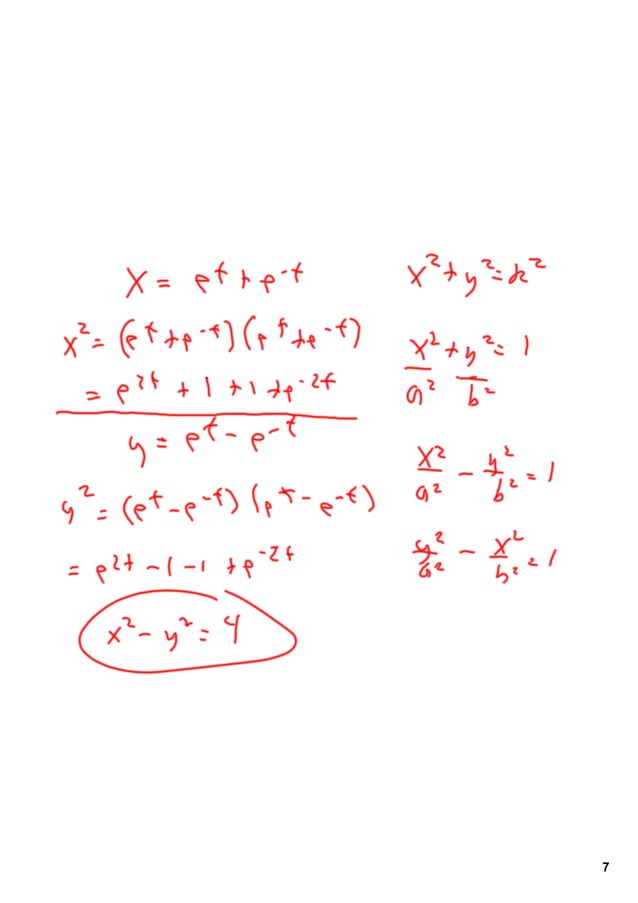 x = e^t + e^-t
x² = (e^t + e^-t)(e^t + e^-t)
= e^2t + 1 + 1 + e^-2t
y = e^t - e^-t
y² = (e^t - e^-t)(e^t - e^-t)
= e^2t - 1 - 1 + e^-2t
x² - y² = 4
x² + y² = r²
x²/a² + y²/b² = 1
x²/a² - y²/b² = 1
y²/a² - x²/b² = 1
7